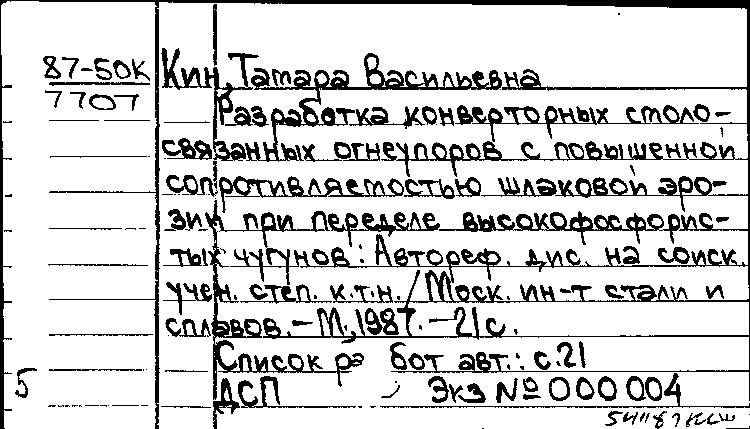 87-50К
7707
Кин, Тамара Васильевна
Разработка конверторных смоло-
связанных огнеупоров с повышенной
сопротивляемостью шлаковой эро-
зии при переделе высокофосфорис-
тых чугунов: Автореф. дис. на соиск.
учен. степ. к.т.н. / Моск. ин-т стали и
сплавов. – М., 1987. – 21 с.
Список ра бот авт.: с. 21
5
ДСП Экз № 000 004